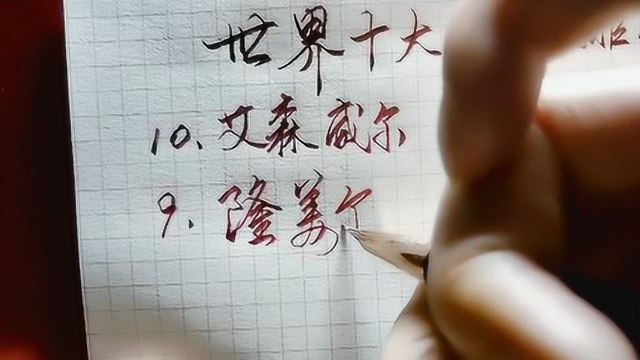 世界十大
10、艾森威尔
9、隆美尔